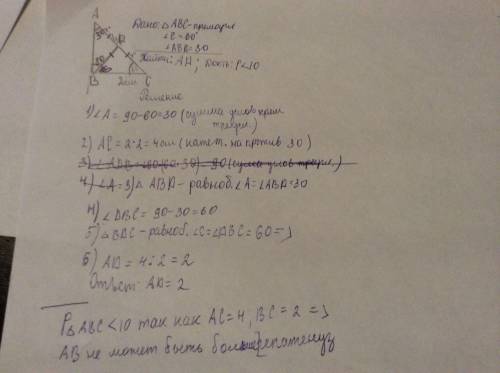 A
30
D
30
60
B 2см C
Дано: △ABC-прямоуг
∠C=60°
∠ABD=30
Найти: AD; Док-ть: P<10
Решение
1) ∠A = 90-60=30 (сумма углов прям. треуг.)
2) AC = 2·2=4см (катет. на против 30)
4) ∠A=3) △ ABD - равноб. ∠A=∠ABD=30
4) ∠DBC = 90-30=60
5) △BDC - равноб. ∠C=∠DBC=60=>
6) AD = 4:2=2
Ответ: AD=2
P△ABC<10 так как AC=4, BC=2 =>
AB не может быть больше гипотенуз